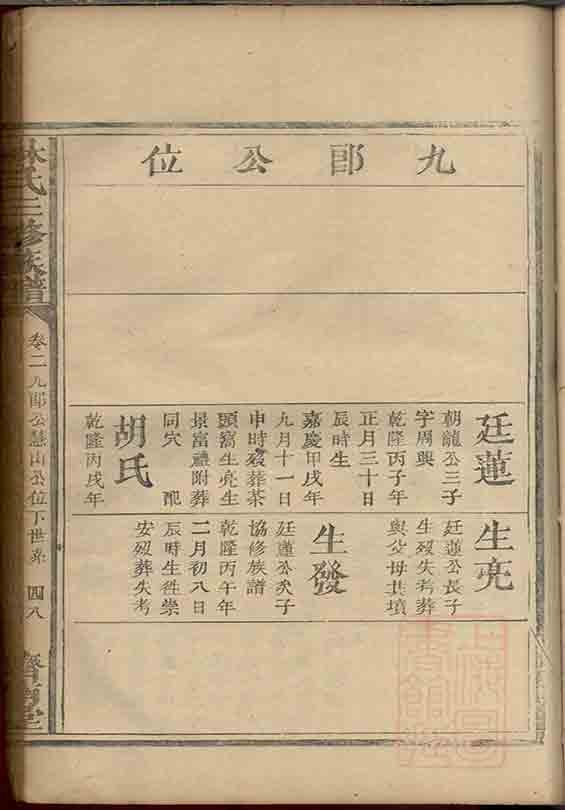 九郎公位
廷蓮
朝龍公三子
字周興
乾隆丙子年
正月三十日
辰時生
嘉慶甲戌年
九月十一日
申時歿葬茶
頭窩生亮生
景富禮附葬
同穴 配
胡氏
乾隆丙戌年
生亮
廷蓮公長子
生歿失考葬
與父母共墳
生發
廷蓮公次子
協修族譜
乾隆丙午年
二月初八日
辰時生徃崇
安歿葬失考
林氏三修族譜
卷二九郎公慧山公位下世系 四八
齊